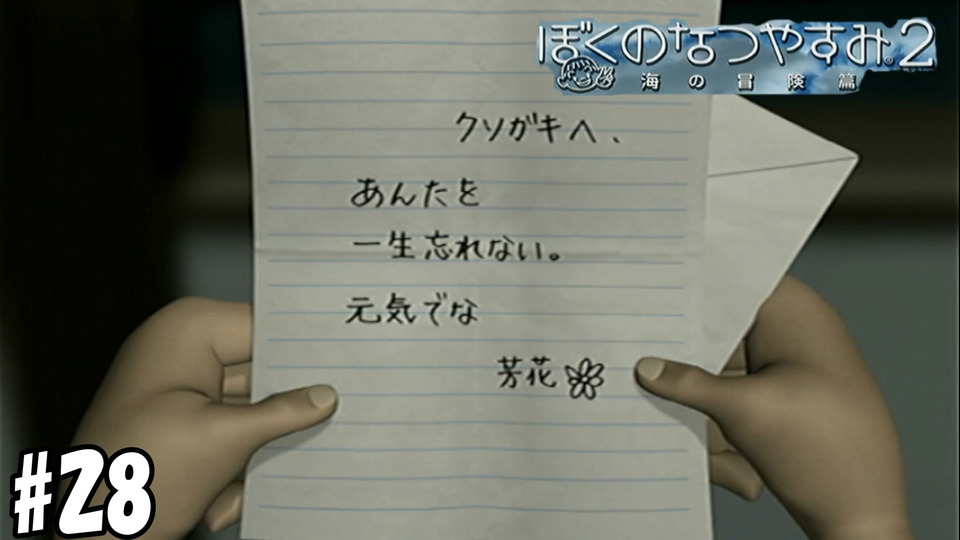 ぼくのなつやすみ2
海の冒険篇
クソガキへ、
あんたを
一生忘れない。
元気でな
芳花
#28